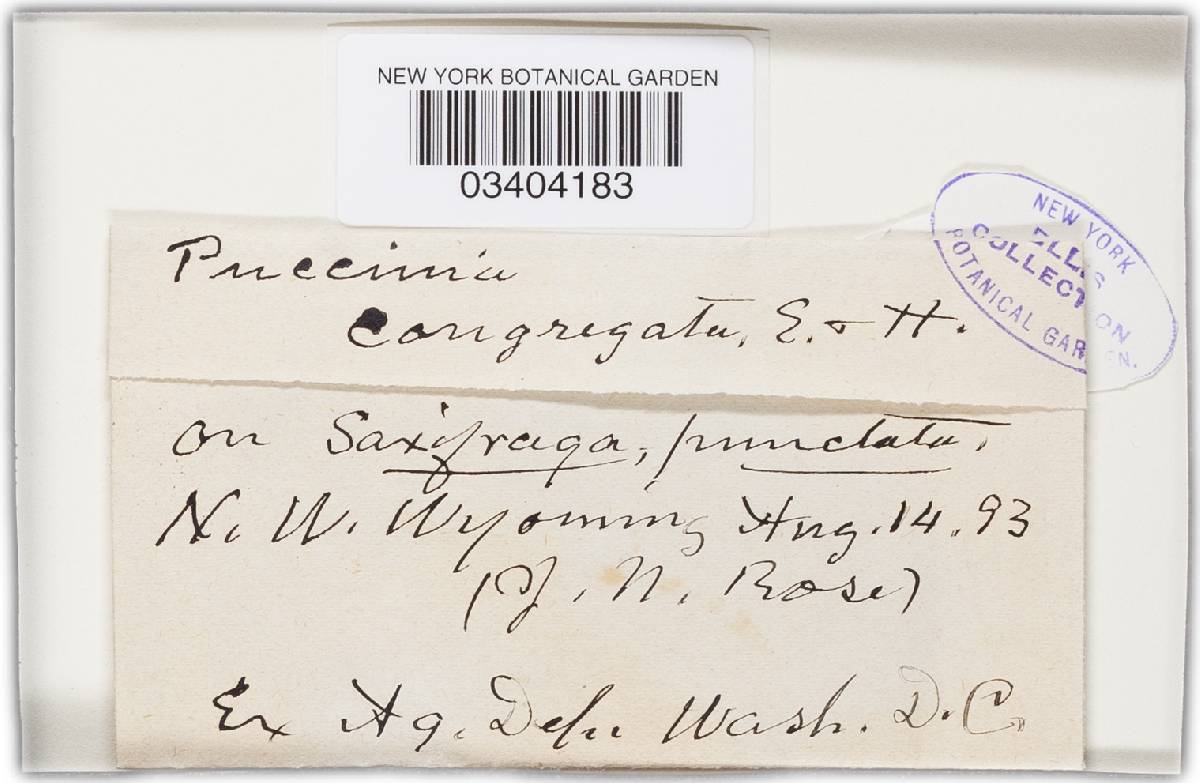 NEW YORK BOTANICAL GARDEN
03404183
NEW YORK
ELLIS
COLLECTION
BOTANICAL GARDEN.
Puccinia
congregata, E. & H.
on Saxifraga, punctata,
N. W. Wyoming Aug. 14. 93
(J. N. Rose)
Ex Ag. Dep. Wash. D. C.